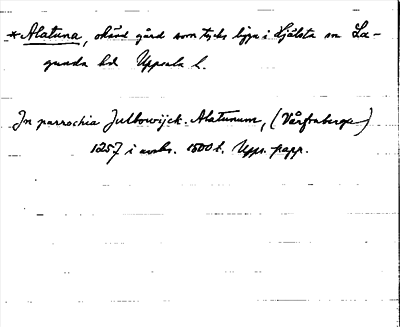 *Alatuna, okänd gård som tycks ligga i Hjälsta sn La-
gunda hd Uppsala l.
In parrochia Jutbowijck. Alatunum, (Vårfruberga)
1257 i avskr. 1500 t. Upps. papp.